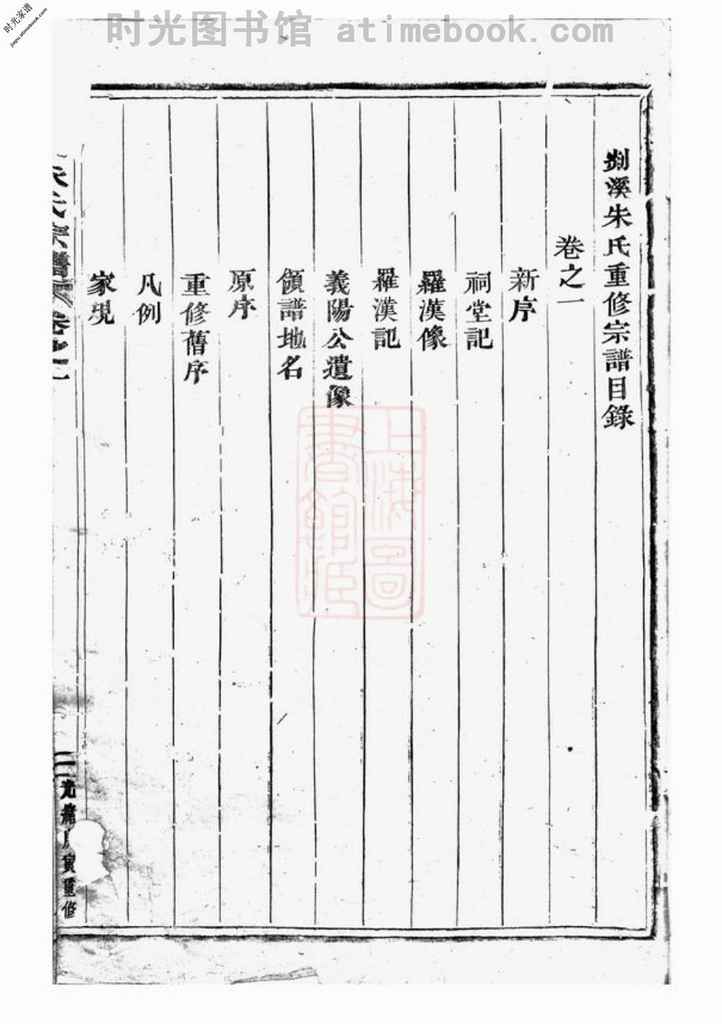 时光图书馆 atimebook.com
时光家谱
jiapu.atimebook.com
剡溪朱氏重修宗譜目錄
卷之一
新序
祠堂記
羅漢像
羅漢記
義陽公遺像
領譜地名
原序
重修舊序
凡例
家規
朱氏宗譜 卷之一
二
光緒 寅重修
上海圖書館藏